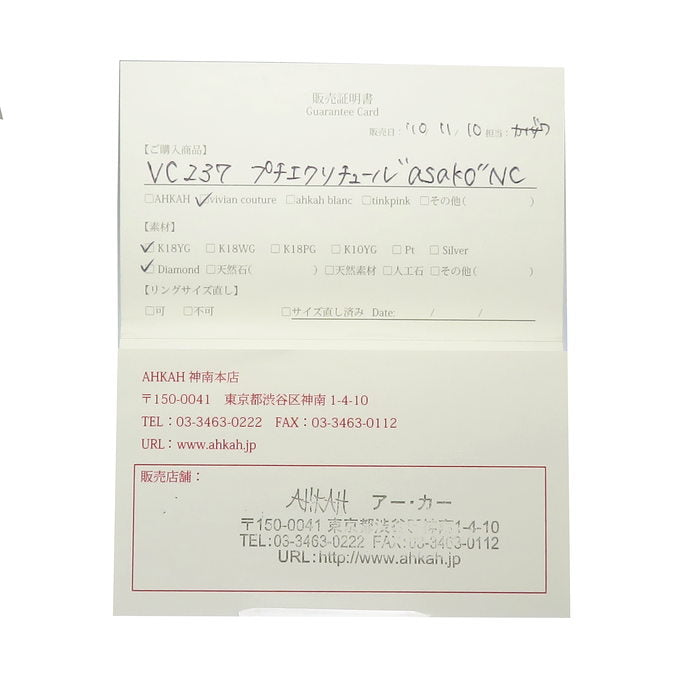 販売証明書
Guarantee Card
販売日: '10 11 / 10 担当:
【ご購入商品】
VC237 プチエクリチュール"asako"NC
□AHKAH ☑vivian couture □ahkah blanc □tinkpink □その他( )
【素材】
☑K18YG □K18WG □K18PG □K10YG □Pt □Silver
☑Diamond □天然石( ) □天然素材 □人工石 □その他( )
【リングサイズ直し】
□可 □不可 □サイズ直し済み Date: / /
AHKAH 神南本店
〒150-0041 東京都渋谷区神南 1-4-10
TEL：03-3463-0222 FAX：03-3463-0112
URL：www.ahkah.jp
販売店舗：
AHKAH アー・カー
〒150-0041 東京都渋谷区神南1-4-10
TEL:03-3463-0222 FAX:03-3463-0112
URL:http://www.ahkah.jp